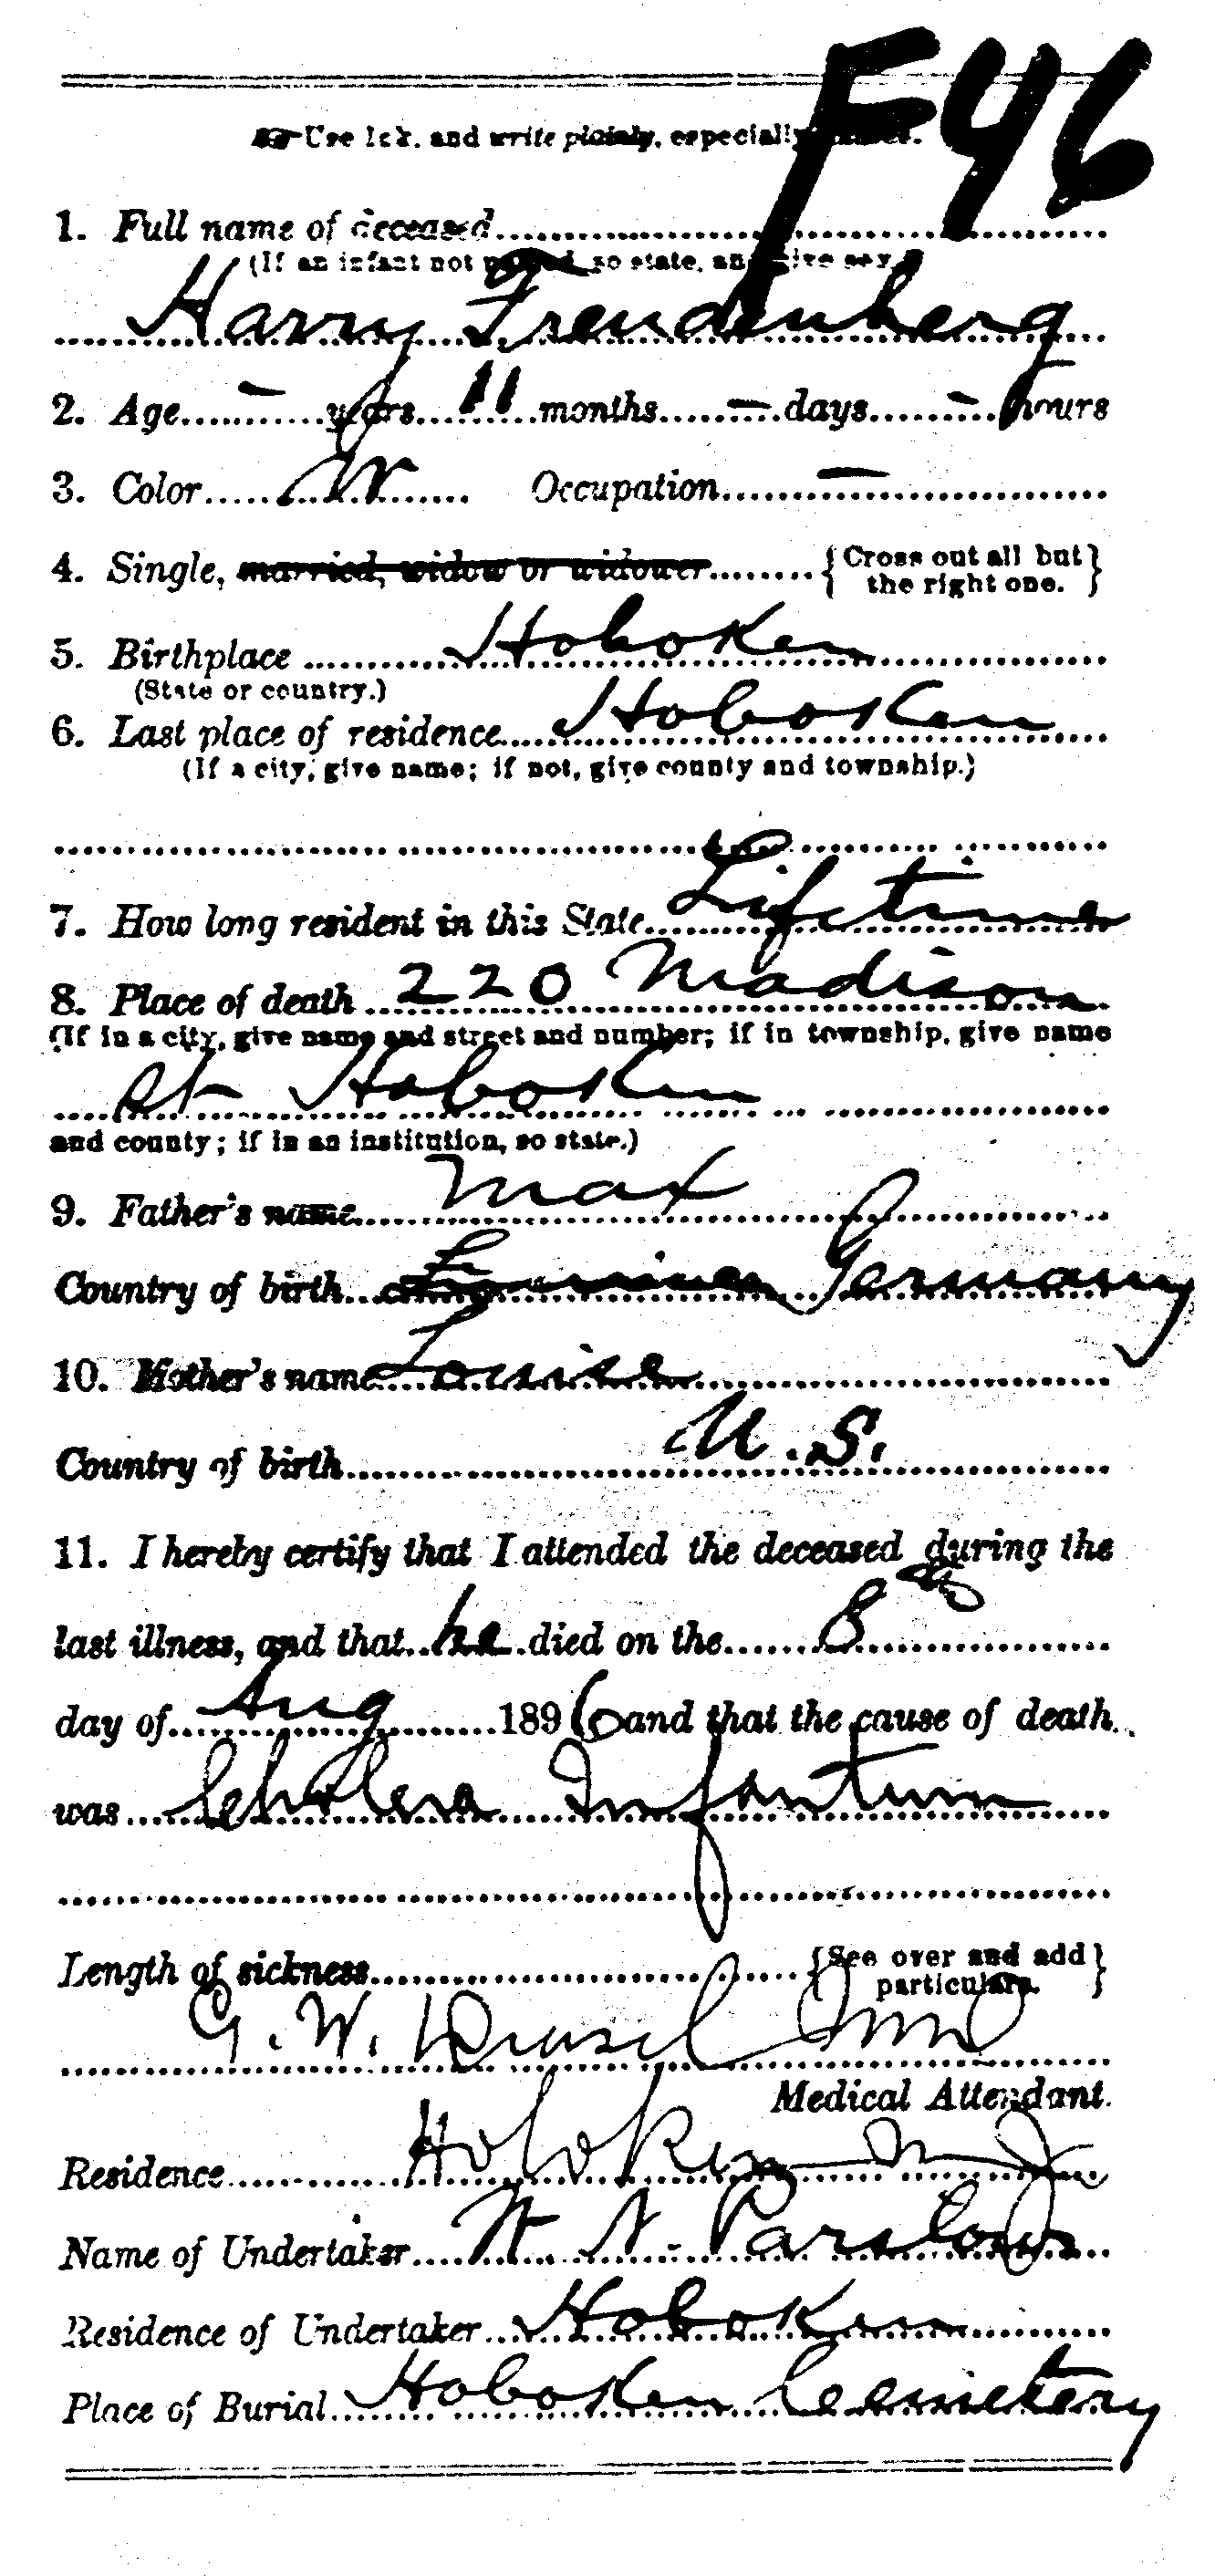 F46
Use Ink. and write plainly, especially names.
1. Full name of deceased
(If an infant not named, so state, and give sex.)
Harry Freudenberg
2. Age — years 11 months — days — hours
3. Color W Occupation —
4. Single, married, widow or widower {Cross out all but the right one.}
5. Birthplace Hoboken
(State or country.)
6. Last place of residence Hoboken
(If a city, give name; if not, give county and township.)
7. How long resident in this State Lifetime
8. Place of death 220 Madison
(If in a city, give name and street and number; if in township, give name
St Hoboken
and county; if in an institution, so state.)
9. Father's name Max
Country of birth Germany
10. Mother's name Louisa
Country of birth U.S.
11. I hereby certify that I attended the deceased during the
last illness, and that he died on the 8th
day of Aug 1896 and that the cause of death
was Cholera Infantum
Length of sickness {See over and add particulars.}
G. W. MD
Medical Attendant.
Residence Hoboken N J
Name of Undertaker W. N. Parslow
Residence of Undertaker Hoboken
Place of Burial Hoboken Cemetery